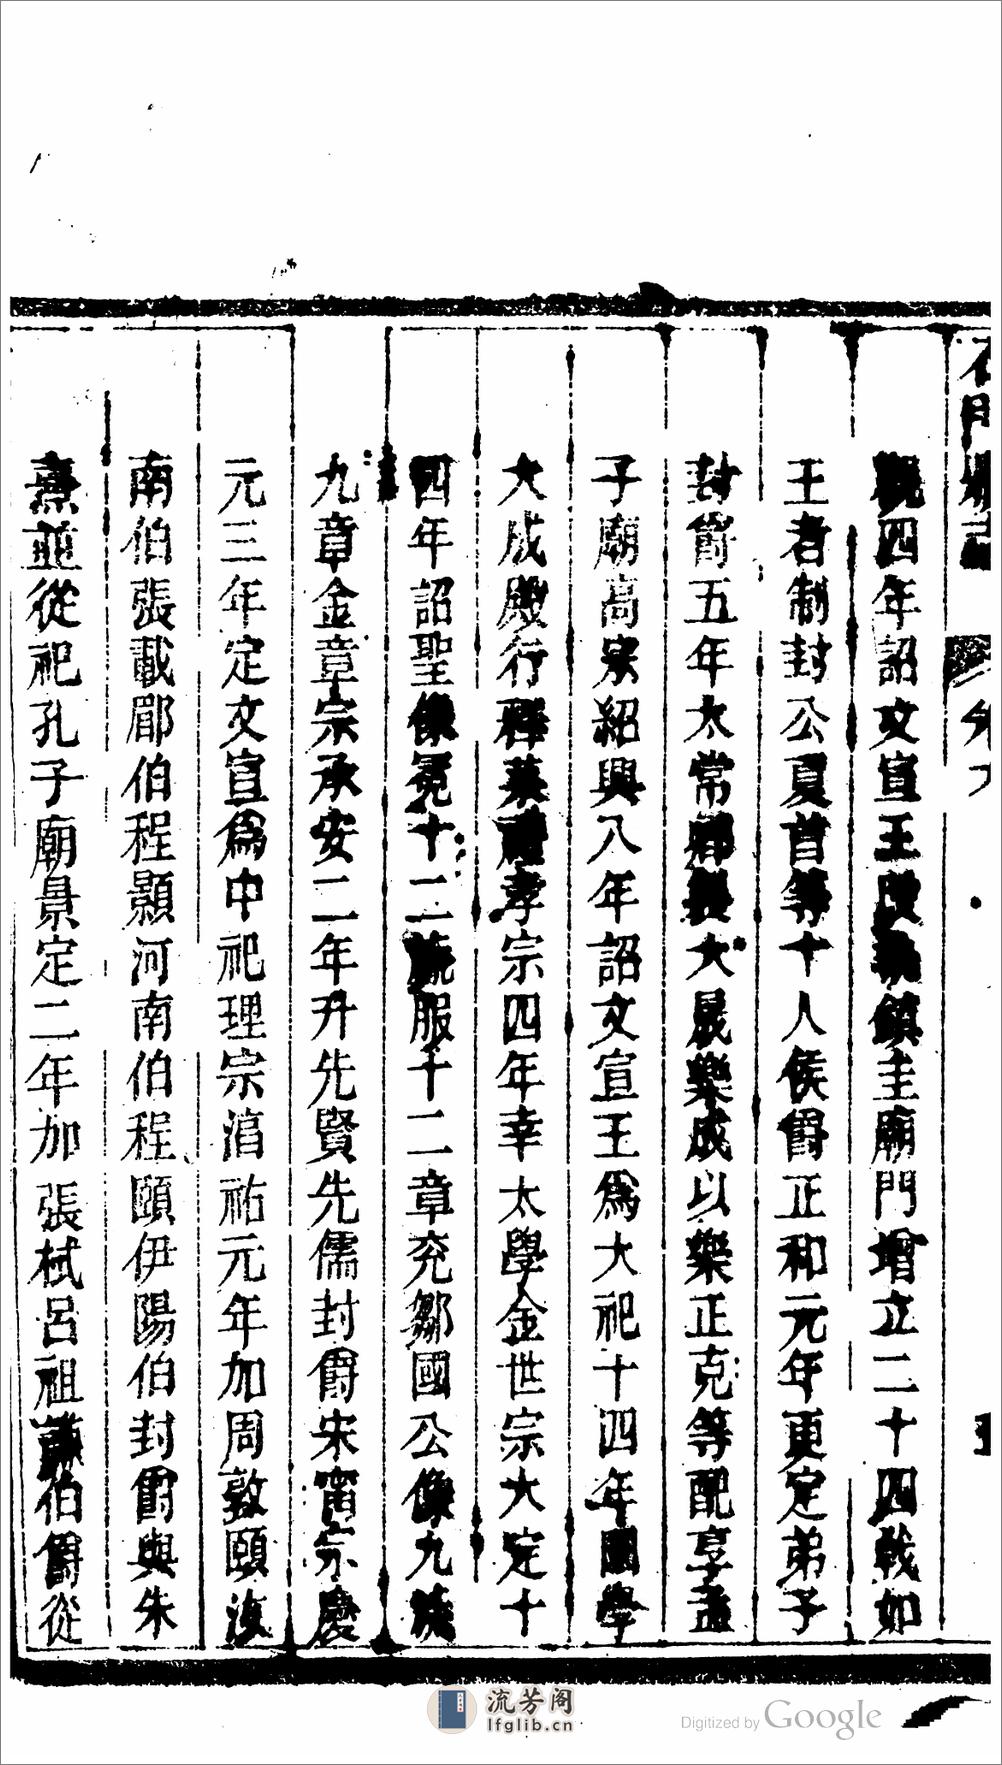 石門縣志 卷 五
觀四年詔文宣王改執鎮圭廟門增立二十四戟如
王者制封公夏首等十人侯爵正和元年更定弟子
封爵五年太常大晟樂成以樂正克等配享孟
子廟高宗紹興八年詔文宣王為大祀十四年國學
大成殿行釋菜禮孝宗四年幸太學金世宗大定十
四年詔聖像冕十二旒服十二章兗鄒國公像九旒
九章金章宗承安二年升先賢先儒封爵宋甯宗慶
元三年定文宣為中祀理宗淳祐元年加周敦頤汝
南伯張載郿伯程顥河南伯程頤伊陽伯封爵與朱
熹並從祀孔子廟景定二年加張栻呂祖謙伯爵從
流芳阁
lfglib.cn
Digitized by Google